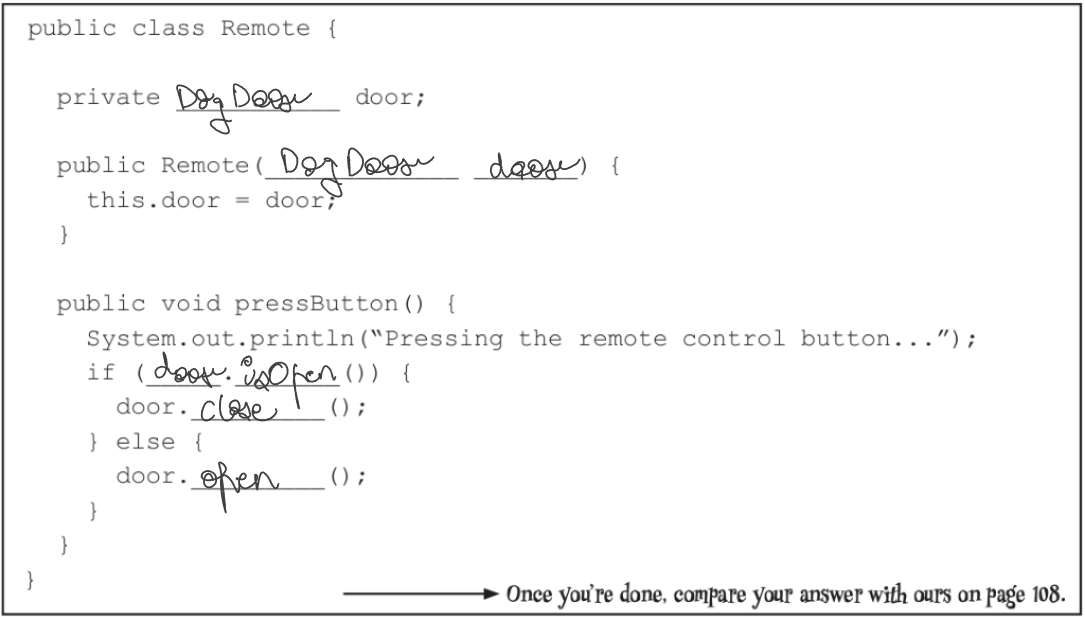 public class Remote {
private DogDoor door;
public Remote( DogDoor door) {
this.door = door;
}
public void pressButton() {
System.out.println(“Pressing the remote control button...”);
if (door.isOpen()) {
door.close();
} else {
door.open();
}
}
}
Once you’re done, compare your answer with ours on page 108.